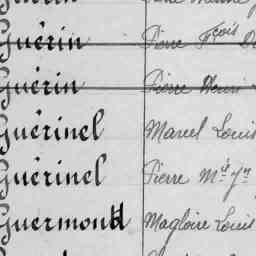 Guérin Pierre Fçois
Guérin Pierre Henri
Guérinel Marcel Louis
Guérinel Pierre Mie Jn
Guermont Magloire Louis